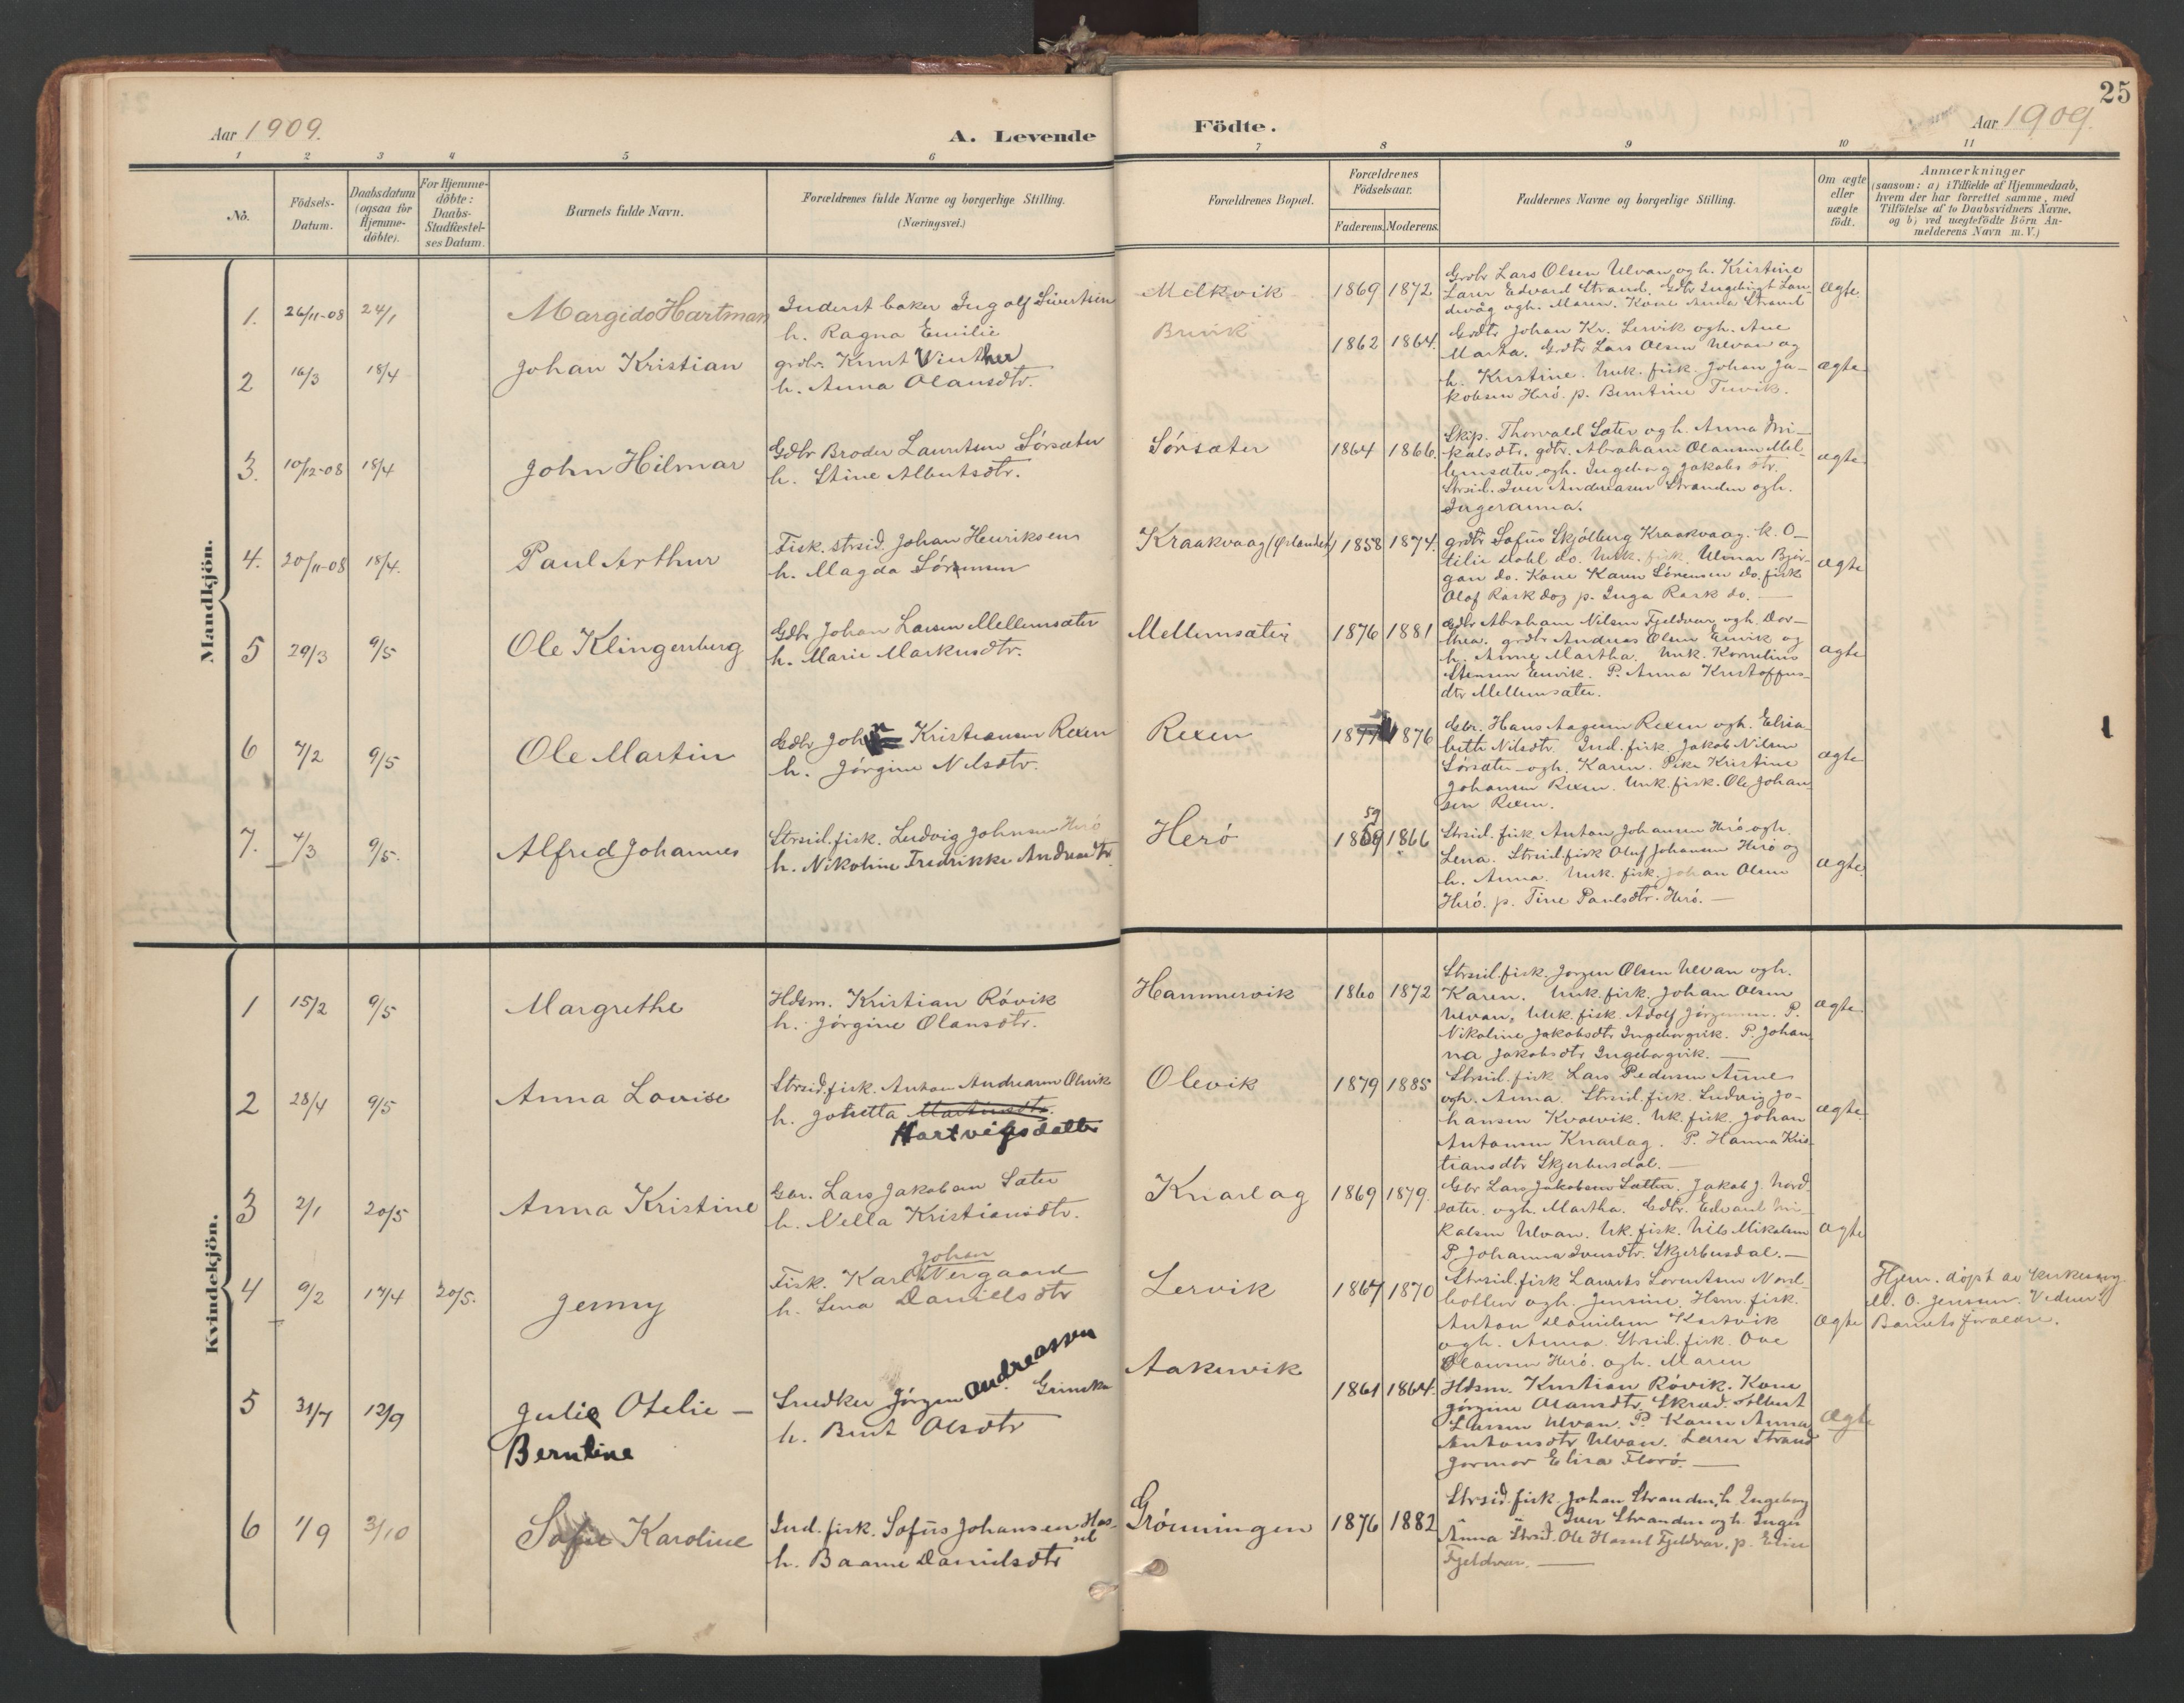 25
Aar 1909. A. Levende Födte. Aar 1909.
1 2 3 4 5 6 7 8 9 10 11
No.
Födsels-
Datum.
Daabsdatum
(ogsaa for
Hjemme-
döbte).
For Hjemme-
döbte:
Daabs-
Stadfæstel-
ses Datum.
Barnets fulde Navn.
Forældrenes fulde Navne og borgerlige Stilling.
(Næringsvei.)
Forældrenes Bopæl.
Forældrenes
Födselsaar.
Faderens. Moderens.
Faddernes Navne og borgerlige Stilling.
Om ægte
eller
uægte
födt.
Anmærkninger
(saasom: a) i Tilfælde af Hjemmedaab,
hvem der har forrettet samme, med
Tilföielse af to Daabsvidners Navne,
og b) ved uegtefödte Börn An-
melderens Navn m.V.)
Mandkjön.
1. 26/11-08 24/1 Margido Hartman
Inderst baker Ingolf Sivertsen
h. Ragna Emilie
Melkvik 1869 1872
Grdbr Lars Olsen Ulvan og h. Kristine
Lærer Edvard Strand. Gdbr Ingebrigt
og h. Maren. Kone Anna Strand
ægte
2 16/3 18/4 Johan Kristian
grdbr. Knut Winther
h. Anna Olausdtr.
Bruvik 1862 1864.
Grdbr Johan Kr. Lervik og h. Ane
Marta. Grdbr Lars Olsen Ulvan og
h. Kristine. Unk. fisk. Johan Ja-
kobsen Herö. p. Berntine
ægte
3. 10/12-08 18/4 John Hilmar
Gdbr Broder Lauritsen Sörsæter
h. Stine Albertsdtr.
Sörsæter 1864 1866.
Skip. Thorvald Sæter og h. Anna Mi-
kalsdtr. gdbr. Abraham Olausen Mel-
lemsæter og h. Ingeborg Jakobsdtr.
Strsid. Iver Andreasen Stranden og h.
Ingeranna.
ægte
4. 20/11-08 18/4. Paul Arthur
Fisk. strsid. Johan Henriksen
h. Magda Sörensen
Kraakvaag (Ørlandet) 1858 1874.
grdbr Sofus Skjölberg Kraakvaag. k. O-
tilie Dahl do. Unk. fisk. Ulmar Björ-
gan do. Kone Karen Sörensen do. fisk
Olaf Rask do og p. Inga Rask do. —
ægte
5 29/3 9/5 Ole Klingenberg
Gdbr Johan Larsen Mellemsæter
h. Marie Markusdtr.
Mellemsæter 1876 1881
Gdbr Abraham Nilsen Fjeldvær og h. Dor-
thea. grdbr Andreas Olsen Envik og
h. Anne Martha. Unk. Kornelius
Stensen Envik. P. Anna Kristoffers-
dtr Mellemsæter.
ægte
6 7/2 9/5 Ole Martin
Gdbr John Kristiansen Rexen
h. Jörgine Nilsdtr.
Rexen 1876
Gbr. Hans Aagesen Rexen og h. Elisa-
beth Nilsdtr. Ind. fisk. Jakob Nilsen
Sörsæter og h. Karen. Pike Kristine
Johansen Rexen. Unk. fisk. Ole Johan-
sen Rexen.
ægte
7. 4/3 9/5. Alfred Johannes
Strsid. fisk. Ludvig Johnsen Herö
h. Nikoline Fredrikke Andreasdtr.
Herö 59 1869 1866
Strsid. fisk Anton Johansen Herö og h.
Lena. Strsid. fisk Oluf Johansen Herö og
h. Anna. Unk. fisk. Johan Olsen
Herö. p. Tine Paulsdtr. Herö. —
ægte.
Kvindekjön.
1 15/2 9/5 Margrethe
Hdsm. Kristian Rövik
h. Jörgine Olausdtr.
Hammervik 1860 1872
Strsid. fisk. Jörgen Olsen Ulvan og h.
Karen. Unk. fisk. Johan Olsen
Ulvan, Unk. fisk. Adolf Jörgensen. P.
Nikoline Jakobsdtr Ingeborgvik. P. Johan-
na Jakobsdtr Ingeborgvik. —
ægte
2 28/4 9/5 Anna Lovise
Strsid. fisk. Anton Andreasen Olevik
h. Johetta Martinsdtr.
Hartvigsdatter
Olevik 1879 1885
Strsid. fisk Lars Pedersen Aune
og h. Anna. Strsid. fisk. Ludvig Jo-
hansen Kvalvik. Uk. fisk. Johan
Antonsen Knarlag. P. Hanna Kris-
tiansdtr Skjerbusdal. —
ægte
3 2/1 20/5 Anna Kristine
Gbr. Lars Jakobsen Sæter
h. Nella Kristiansdtr.
Knarlag 1869 1879.
Gbr Lars Jakobsen Sætter. Jakob J. Nord-
sæter. og h. Martha. Gdbr. Edvard Mi-
kalsen Ulvan. Uk. fisk. Nils Mikalsen
P. Johanna Iversdtr. Skjerbusdal. —
ægte
4 9/2 17/4 20/5. Jenny
Johan
Fisk. Karl Vergaard
h. Lena Danielsdtr
Lervik 1867 1870
Strsid. fisk Laurits Lorentsen Nord-
botten og h. Jensine. Hsm. fisk.
Anton Danielsen Kastvik
og h. Anna. Strsid. fisk. Ove
Olausen Herö. og h. Maren
ægte
Hjem. döpt av kirkesang.
M. O. Jenssen. Vidner
Barnets forældre.
5 31/7 12/9 Julie Otelie —
Berntine
Snedker Jörgen Andreassen
h. Berit Olsdtr
Aakervik 1861 1864.
Hdsm. Kristian Rövik. Kone
Jörgine Olausdtr. Skræd. Albert
Larsen Ulvan. P. Karen Anna
Antonsdtr Ulvan. Lærer Strand
Jormor Elisa Florö. —
ægte
6 1/9 3/10 Sofie Karoline
Ind. fisk. Sofus Johansen Has-
sel
h. Baarne Danielsdtr
Grönningen 1876 1882
Strsid. fisk. Johan Stranden, h. Ingeborg
" Iver Stranden og h. Inger
Anna Strsid. Ole Hassel Fjeldvær. p. Elise
Fjeldvær. —